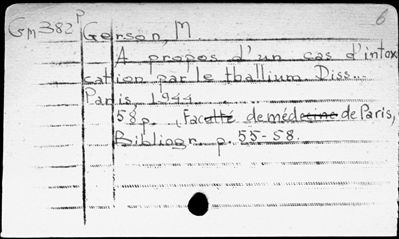 6
Gm382P Gerson, M
A propos d'un cas d'intox
cation par le thallium. Diss...
Paris, 1944
58p. (Faculté de médecine de Paris,
Bibliogr. p. 55-58.